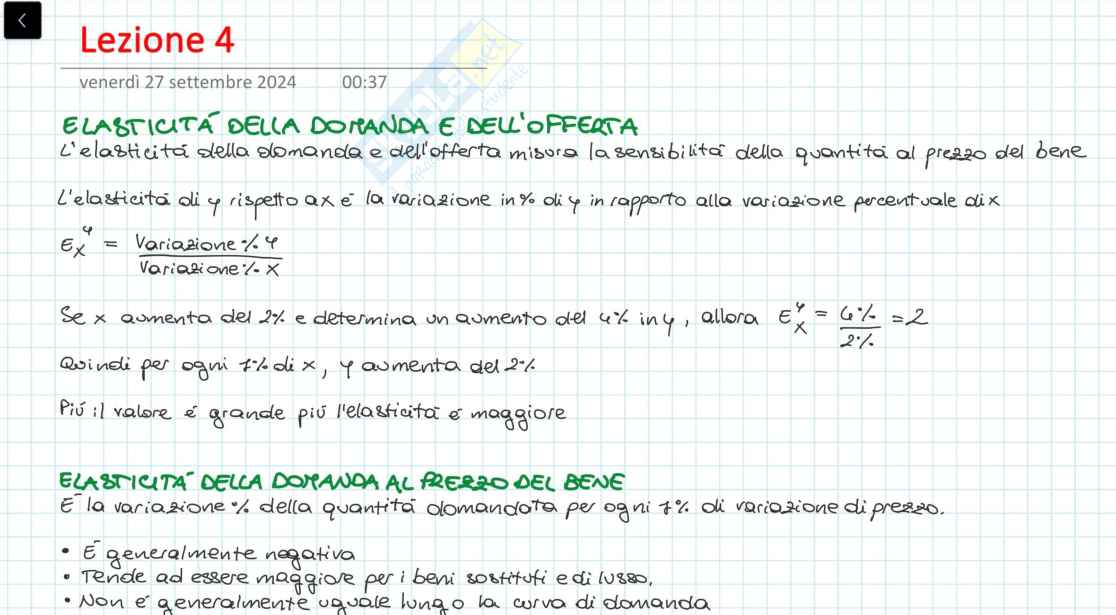 Lezione 4
venerdì 27 settembre 2024 00:37
ELASTICITÀ DELLA DOMANDA E DELL'OFFERTA
L'elasticità della domanda e dell'offerta misura la sensibilità della quantità al prezzo del bene
L'elasticità di y rispetto a x è la variazione in % di y in rapporto alla variazione percentuale di x
E_x^y = Variazione % y / Variazione % x
Se x aumenta del 2% e determina un aumento del 4% in y, allora E_x^y = 4% / 2% = 2
Quindi per ogni 1% di x, y aumenta del 2%
Più il valore è grande più l'elasticità è maggiore
ELASTICITÀ DELLA DOMANDA AL PREZZO DEL BENE
È la variazione % della quantità domandata per ogni 1% di variazione di prezzo.
• È generalmente negativa
• Tende ad essere maggiore per i beni sostituti e di lusso,
• Non è generalmente uguale lungo la curva di domanda